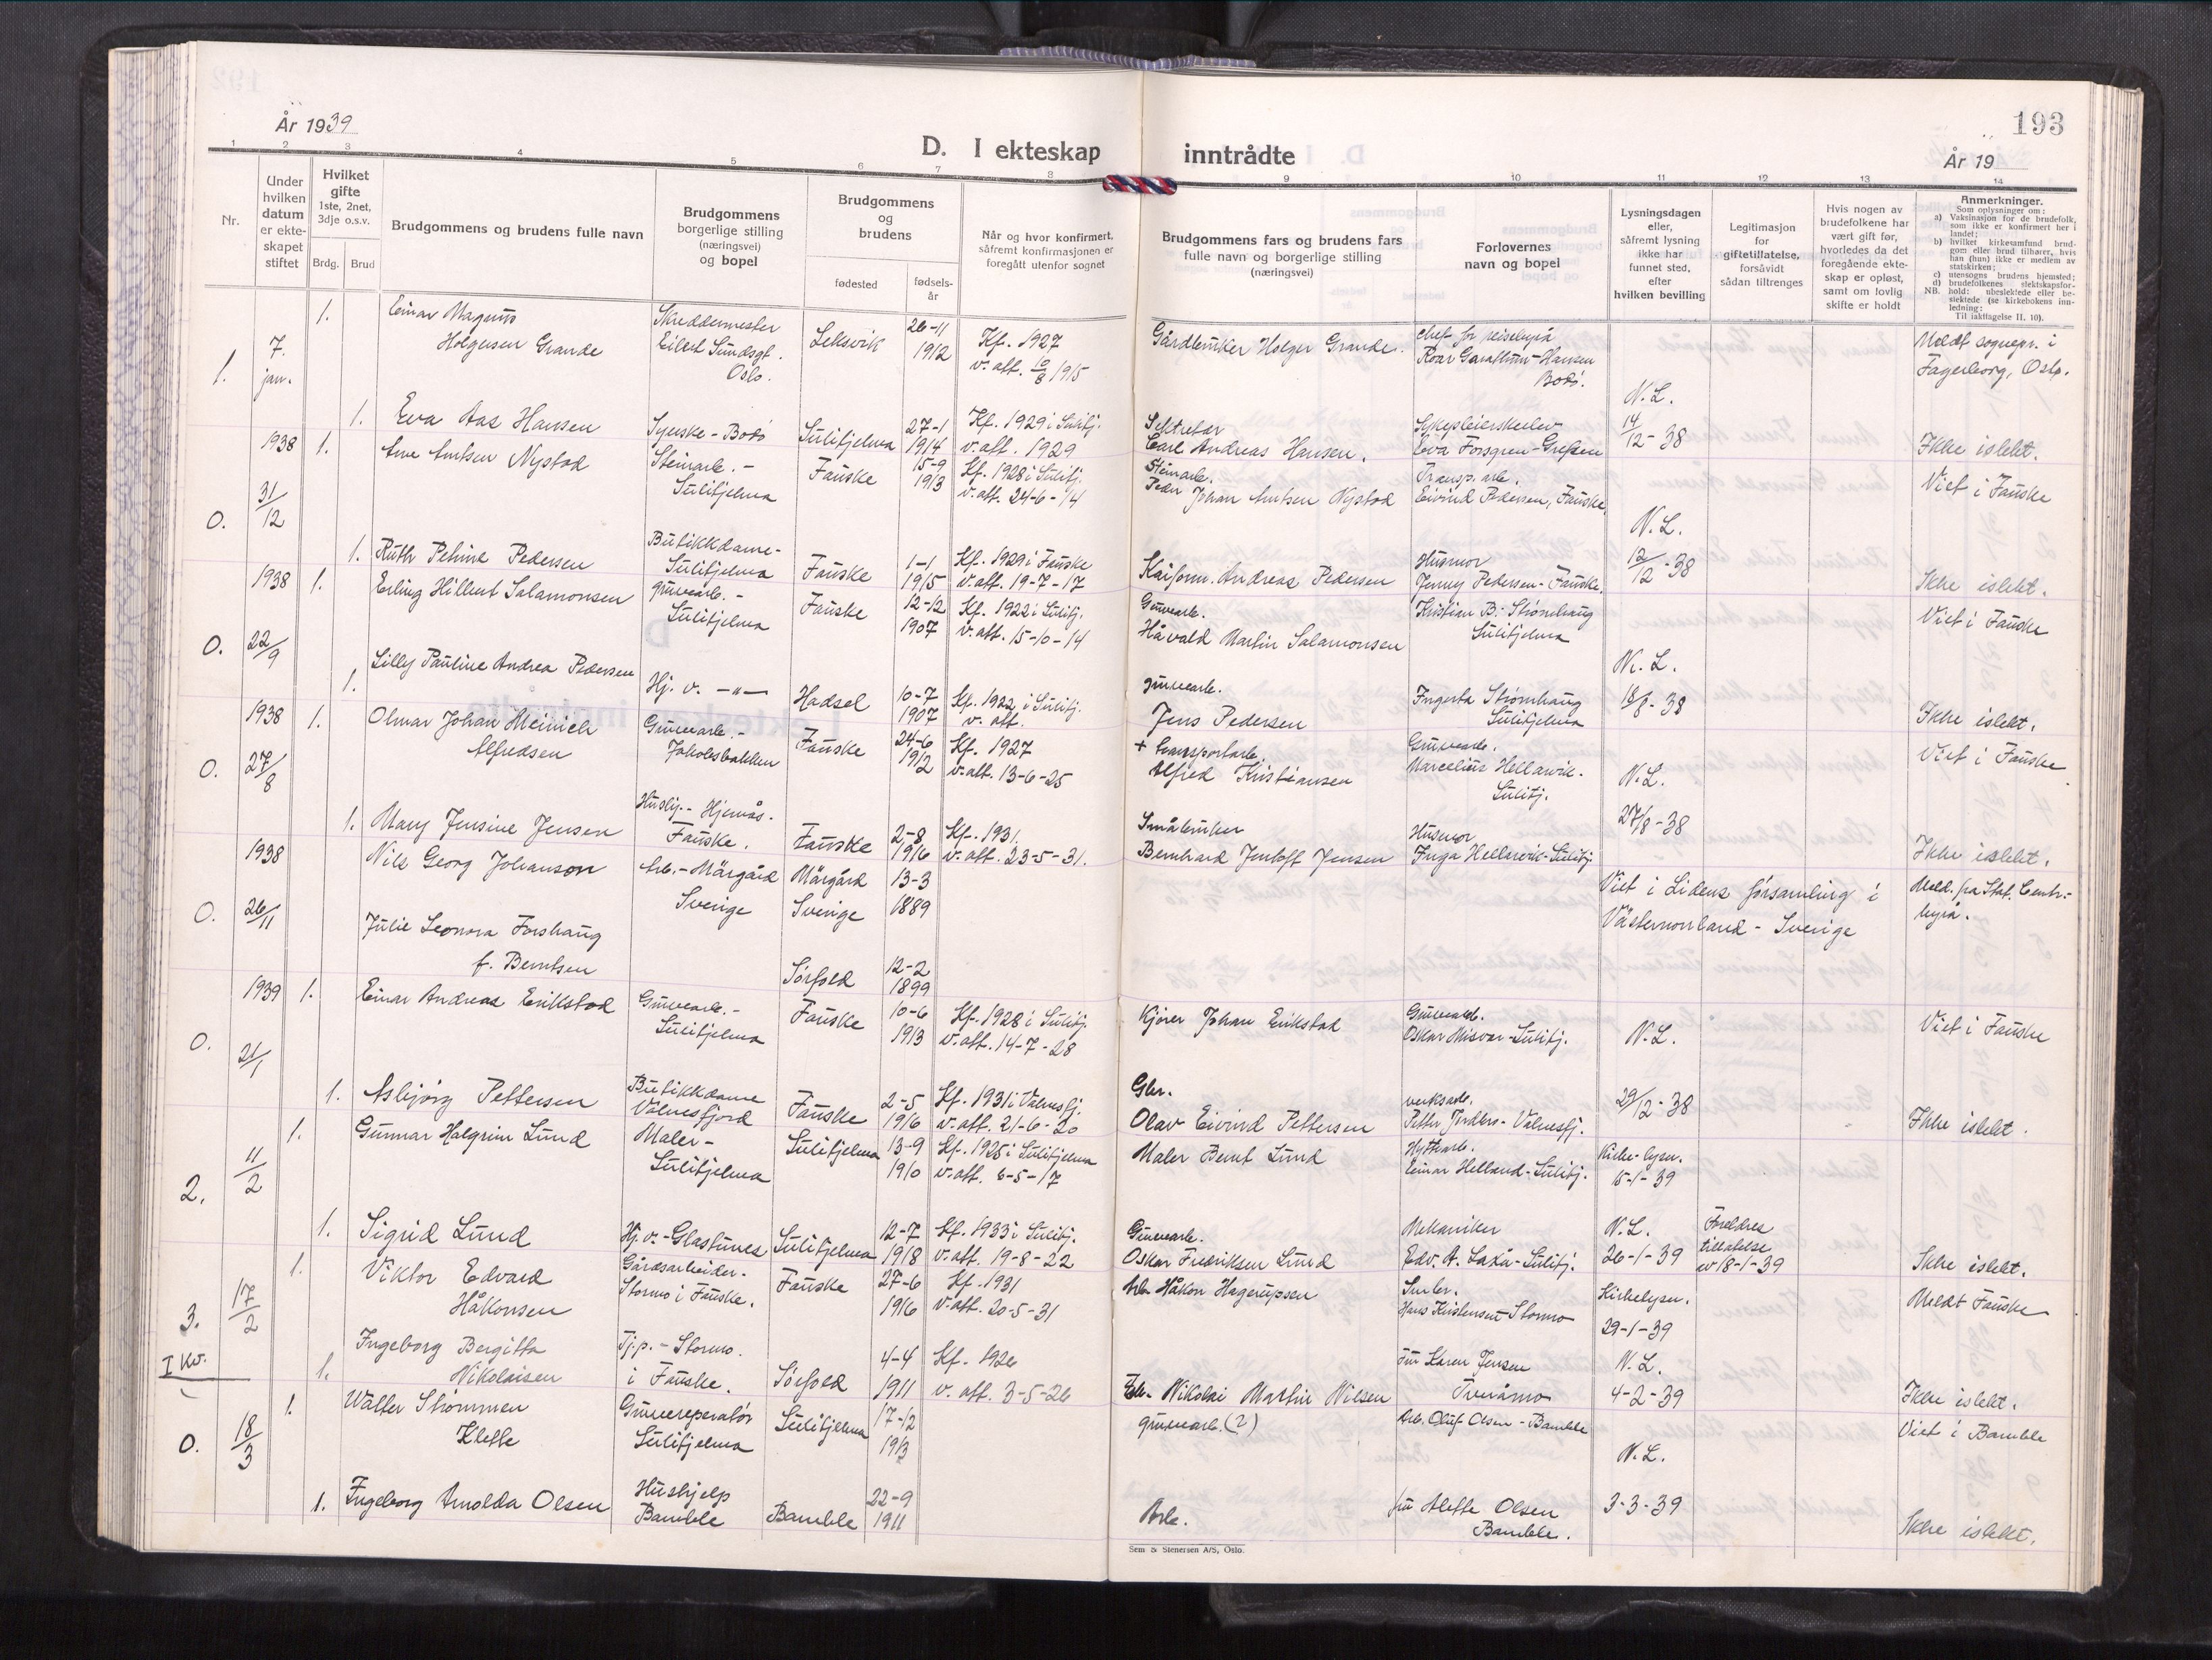 193
År 1939
D. I ekteskap inntrådte
År 19
1 2 3 4 5 6 7 8 9 10 11 12 13 14
Nr.
Under hvilken datum er ekteskapet stiftet
Hvilket gifte 1ste, 2net, 3dje o.s.v.
Brdg. Brud
Brudgommens og brudens fulle navn
Brudgommens borgerlige stilling (næringsvei) og bopel
Brudgommens og brudens
fødested
fødsels-år
Når og hvor konfirmert, såfremt konfirmasjonen er foregått utenfor sognet
Brudgommens fars og brudens fars fulle navn og borgerlige stilling (næringsvei)
Forlovernes navn og bopel
Lysningsdagen eller, såfremt lysning ikke har funnet sted, efter hvilken bevilling
Legitimasjon for giftetillatelse, forsåvidt sådan tiltrenges
Hvis nogen av brudefolkene har vært gift før, hvorledes da det foregående ekteskap er opløst, samt om lovlig skifte er holdt
Anmerkninger.
Som oplysninger om:
a) Vaksinasjon for de brudefolk, som ikke er konfirmert her i landet;
b) hvilket kirkesamfund brudgom eller brud tilhører, hvis han (hun) ikke er medlem av statskirken;
c) utensogns brudens hjemsted;
d) brudefolkenes slektskapsforhold: ubeslektede eller beslektede (se kirkebokens innledning:
NB. Til iakttagelse II, 10).
1. 7. jan. 1. Einar Magnus Holgersen Grande
Skreddermester Eilert Sundsgt. Oslo.
Leksvik 26-11 1912
Kf. 1927 v. att. 10/8 1915
Gårdbruker Holger Grande.
Chef for reisebyrå Roar Hansen Bodø.
Meldt sognepr. i Fagerborg, Oslo.
1. Eva Aas Hansen
Syerske - Bodø
Sulitjelma 27-1 1914
Kf. 1929 i Sulitj. v. att. 1929
Sekretær Carl Andreas Hansen.
Sykepleierskeelev Eva Forsgren-Grefsen
N.L. 14/12-38
Ikke islekt.
0. 1938 31/12 1. Arne Amtsen Nystad
Steinarb. - Sulitjelma
Fauske 15-9 1913
Kf. 1928 i Sulitj. v. att. 24-6-14
Steinarb. Peder Johan Amtsen Nystad
Transp. arb. Eivind Pedersen, Fauske.
Viet i Fauske
1. Ruth Petrine Pedersen
Butikkdame - Sulitjelma
Fauske 1-1 1915
Kf. 1929 i Fauske v. att. 19-7-17
Kaiform. Andreas Pedersen
Husmor Jenny Pedersen - Fauske.
N.L. 12/12-38
Ikke islekt.
0. 1938 22/9 1. Erling Hilbert Salamonsen
gruvearb. - Sulitjelma
Fauske 12-12 1907
Kf. 1922 i Sulitj. v. att. 15-10-14
Gruvearb. Håvald Martin Salamonsen
Kristian B. Strømhaug Sulitjelma
Viet i Fauske
1. Lilly Pauline Andrea Pedersen
Hj. v. -"-
Hadsel 10-7 1907
Kf. 1922 i Sulitj. v. att.
gruvearb. Jens Pedersen
Ingerta Strømhaug Sulitjelma
N.L. 18/8-38
Ikke islekt.
0. 1938 27/8 1. Olmar Johan Meinich Alfredsen
Gruvearb. - Jakobsbakken
Fauske 24-6 1912
Kf. 1927 v. att. 13-6-25
+ transportarb. Alfred Kristiansen
Gruvearb. Marcelius Hellarvik - Sulitj.
Viet i Fauske
1. Mary Jensine Jensen
Hushj. - Hjemås - Fauske.
Fauske 2-8 1916
Kf. 1931. v. att. 23-5-31.
Småbruker Bernhard Jentoft Jensen
Husmor Inga Hellarvik - Sulitj.
N.L. 27/8-38
Ikke islekt.
0. 1938 26/11 Nils Georg Johanson
Arb. - Märgård Sverige
Märgård Sverige 13-3 1889
Viet i Lidens församling i Västernorrland - Sverige
Meld. fra Stat. Centr.- byrå.
Julie Leonora Forshaug f. Berntsen
Sørfold 12-2 1899
0. 1939 21/1 1. Einar Andreas Erikstad
Gruvearb. - Sulitjelma
Fauske 10-6 1913
Kf. 1928 i Sulitj. v. att. 14-7-28
Kjører Johan Erikstad
Gruvearb. Oskar Misvær - Sulitj.
Viet i Fauske
1. Asbjørg Pettersen
Butikkdame Valnesfjord
Fauske 2-5 1916
Kf. 1931 i Valnesfj. v. att. 21-6-20
Gbr. Olav Eivind Pettersen
verksarb. Petter - Valnesfj.
N.L. 29/12-38
Ikke islekt.
2. 11/2 1. Gunnar Halgrim Lund
Maler - Sulitjelma
Sulitjelma 13-9 1910
Kf. 1925 i Sulitjelma v. att. 6-5-17
Maler Bernt Lund
Hyttearb. Einar Helland - Sulitj.
Kirke-lysn. 15-1-39
1. Sigrid Lund
Hj. v. - Glastunes
Sulitjelma 12-7 1918
Kf. 1933 i Sulitj. v. att. 19-8-22
Gruvearb. Oskar Fredriksen Lund
Mekaniker Edv. A. Laxå - Sulitj.
N.L. 26-1-39
Foreldres tillatelse av 18-1-39
Ikke islekt.
3. 17/2 1. Viktor Edvard Håkonsen
Gårdsarbeider - Stormo i Fauske.
Fauske 27-6 1916
Kf. 1931 v. att. 20-5-31
Arb. Håkon Hagerupsen
Hans Kristensen - Stormo
Kirkelysn. 29-1-39
Meldt Fauske
I Kv.
1. Ingeborg Bergitta Nikolaisen
Tj.p. - Stormo. i Fauske.
Sørfold 4-4 1911
Kf. 1926 v. att. 3-5-26
Nikolai Martin Nilsen
Fru Karen Jensen Tveråmo
N.L. 4-2-39
Ikke islekt.
0. 18/3 1. Walter Strømmen Klette
Gruvereperatør Sulitjelma
Sulitjelma 17-12 1913
gruvearb. (?)
Arb. Oluf Olsen - Bamble
Viet i Bamble
1. Ingeborg Arnolda Olsen
Hushjelp Bamble
Bamble 22-9 1911
Arb.
fru Alette Olsen Bamble.
N.L. 3-3-39
Ikke islekt.
Sem & Stenersen A/S, Oslo.